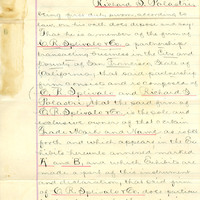 Richard G.
being first duly sworn according to
law on his oath does depose and say
That he is a member of the firm of
C. R. Splivalo & Co. a partnership
transacting business in the City and
County of San Francisco State of
California; that said partnership
firm consists and is composed of
C. R. Splivalo, and Richard G.
that the said firm of
C. R. Splivalo & Co. is the sole and
exclusive owner of that certain
Trade Mark and Name, as set
forth and which appears in the Ex-
hibits hereunto annexed marked
A and B, and which Exhibits are
made a part of this instrument
and declaration, that said firm
of C. R. Splivalo & Co. does